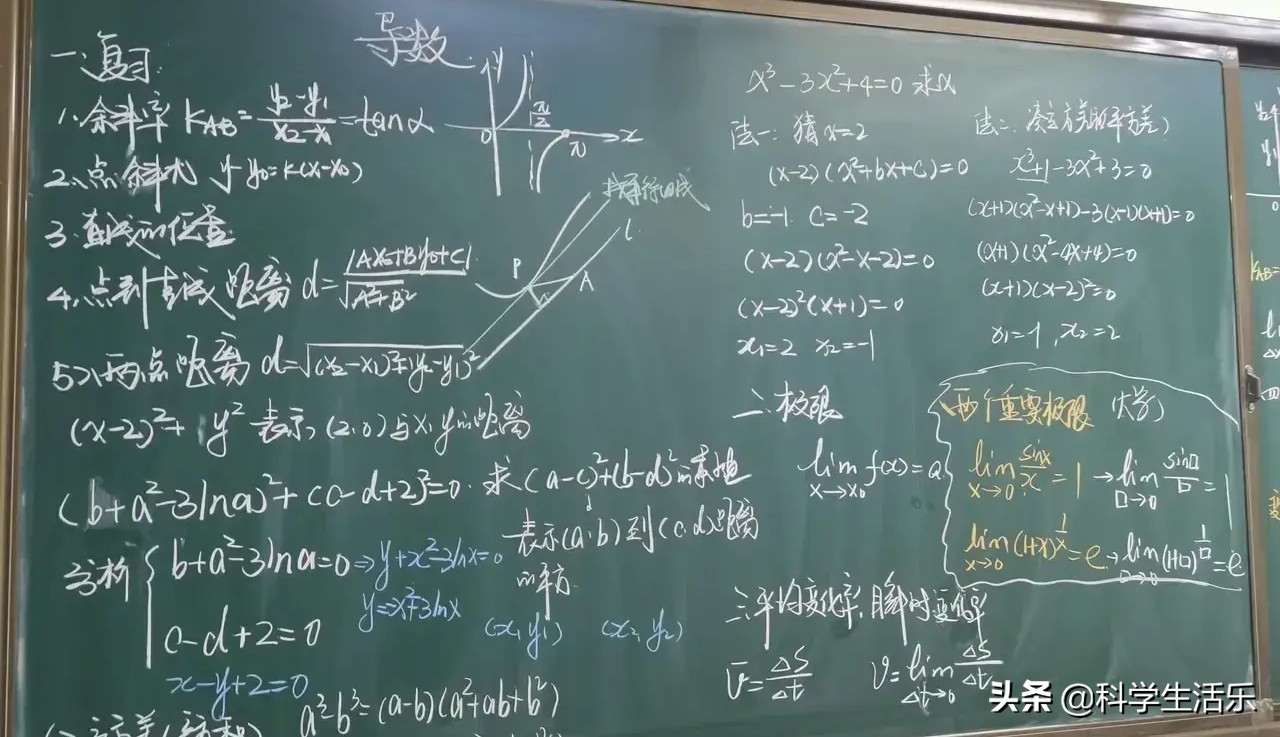 导数
一、复习
1、余斜率 K_AB = (y₂-y₁)/(x₂-x₁) = tanα
2、点斜式 y-y₀=k(x-x₀)
3、直线的位置
4、点到直线距离 d=|Ax₀+By₀+C|/√(A²+B²)
5、两点距离 d=√((x₂-x₁)²+(y₂-y₁)²)
(x-2)²+ y² 表示(2,0)与x,y的距离
(b+a²-3lna)²+(c-d+2)²=0. 求(a-c)²+(b-d)²的
表示(a,b)到(c,d)距离
的平方
分析 { b+a²-3lna=0 ⇒ y+x²-3lnx=0
y=-x²+3lnx
c-d+2=0
(x₁,y₁) (x₂,y₂)
x-y+2=0
a³-b³=(a-b)(a²+ab+b²)
y
π/2
0
π
x
P
A
l
x³-3x²+4=0 求x
法一: 猜x=2
(x-2)(x²+bx+c)=0
b=-1 c=-2
(x-2)(x²-x-2)=0
(x-2)²(x+1)=0
x₁=2 x₂=-1
法二、凑立方差
x³+1-3x²+3=0
(x+1)(x²-x+1)-3(x-1)(x+1)=0
(x+1)(x²-4x+4)=0
(x+1)(x-2)²=0
x₁=-1, x₂=2
二、极限
lim x→x₀ f(x)=a
两个重要极限 (大学)
lim x→0 sinx/x = 1 → lim □→0 sin□/□ = 1
lim x→0 (1+x)^(1/x) = e → lim □→0 (1+□)^(1/□) = e
三、平均变化率, 瞬时变化率
v̄=Δs/Δt v=lim Δt→0 Δs/Δt
头条 @科学生活乐